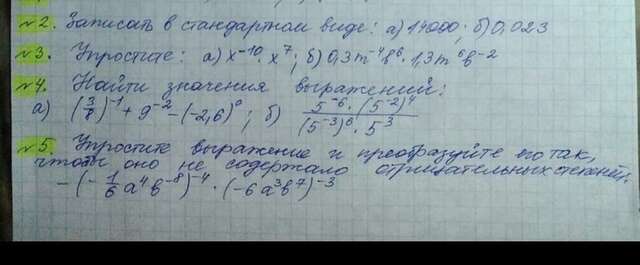 №2. Записать в стандартном виде: а) 14000; б) 0,023
№3. Упростите: а) x⁻¹⁰ · x⁷; б) 0,3m⁻⁴b⁶ · 1,3m⁶b⁻²
№4. Найти значения выражений:
а) (3/8)⁻¹ + 9⁻² − (−2,6)⁰; б) 5⁻⁶ · (5⁻²)⁴ / (5⁻³)⁶ · 5³
№5. Упростите выражение и преобразуйте его так,
чтобы оно не содержало отрицательных степеней:
− (− 1/6 a⁴b⁻⁸)⁻⁴ · (−6a³b⁷)⁻³